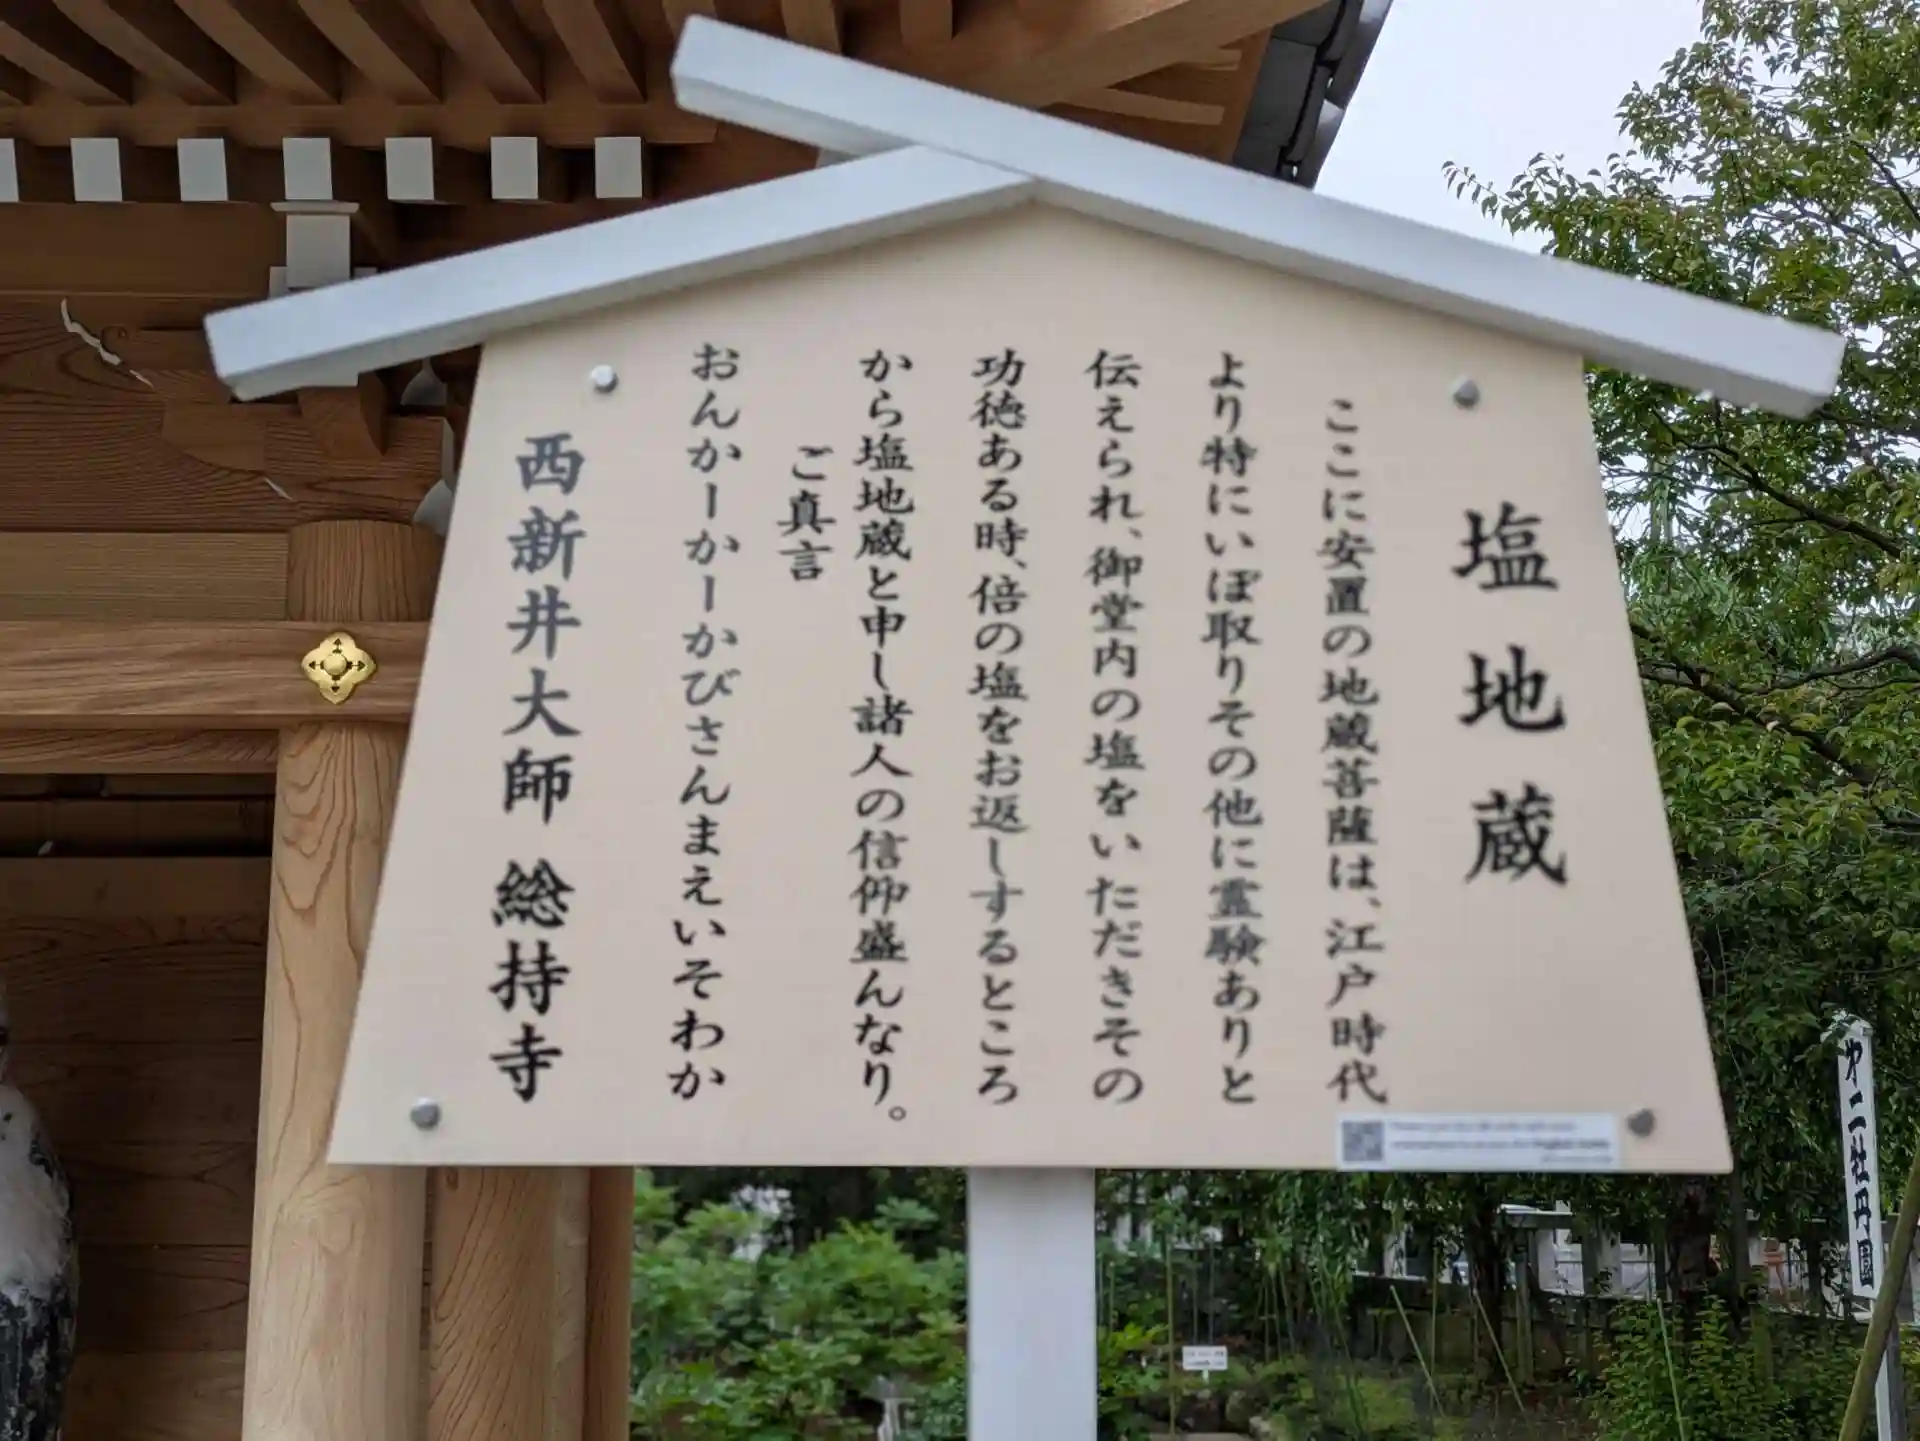 塩地蔵
ここに安置の地蔵菩薩は、江戸時代
より特にいぼ取りその他に霊験ありと
伝えられ、御堂内の塩をいただきその
功徳ある時、倍の塩をお返しするところ
から塩地蔵と申し諸人の信仰盛んなり。
ご真言
おんかーかーかびさんまえいそわか
西新井大師 総持寺
牡丹園